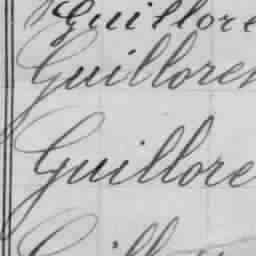 Guillore
Guilloren
Guillore